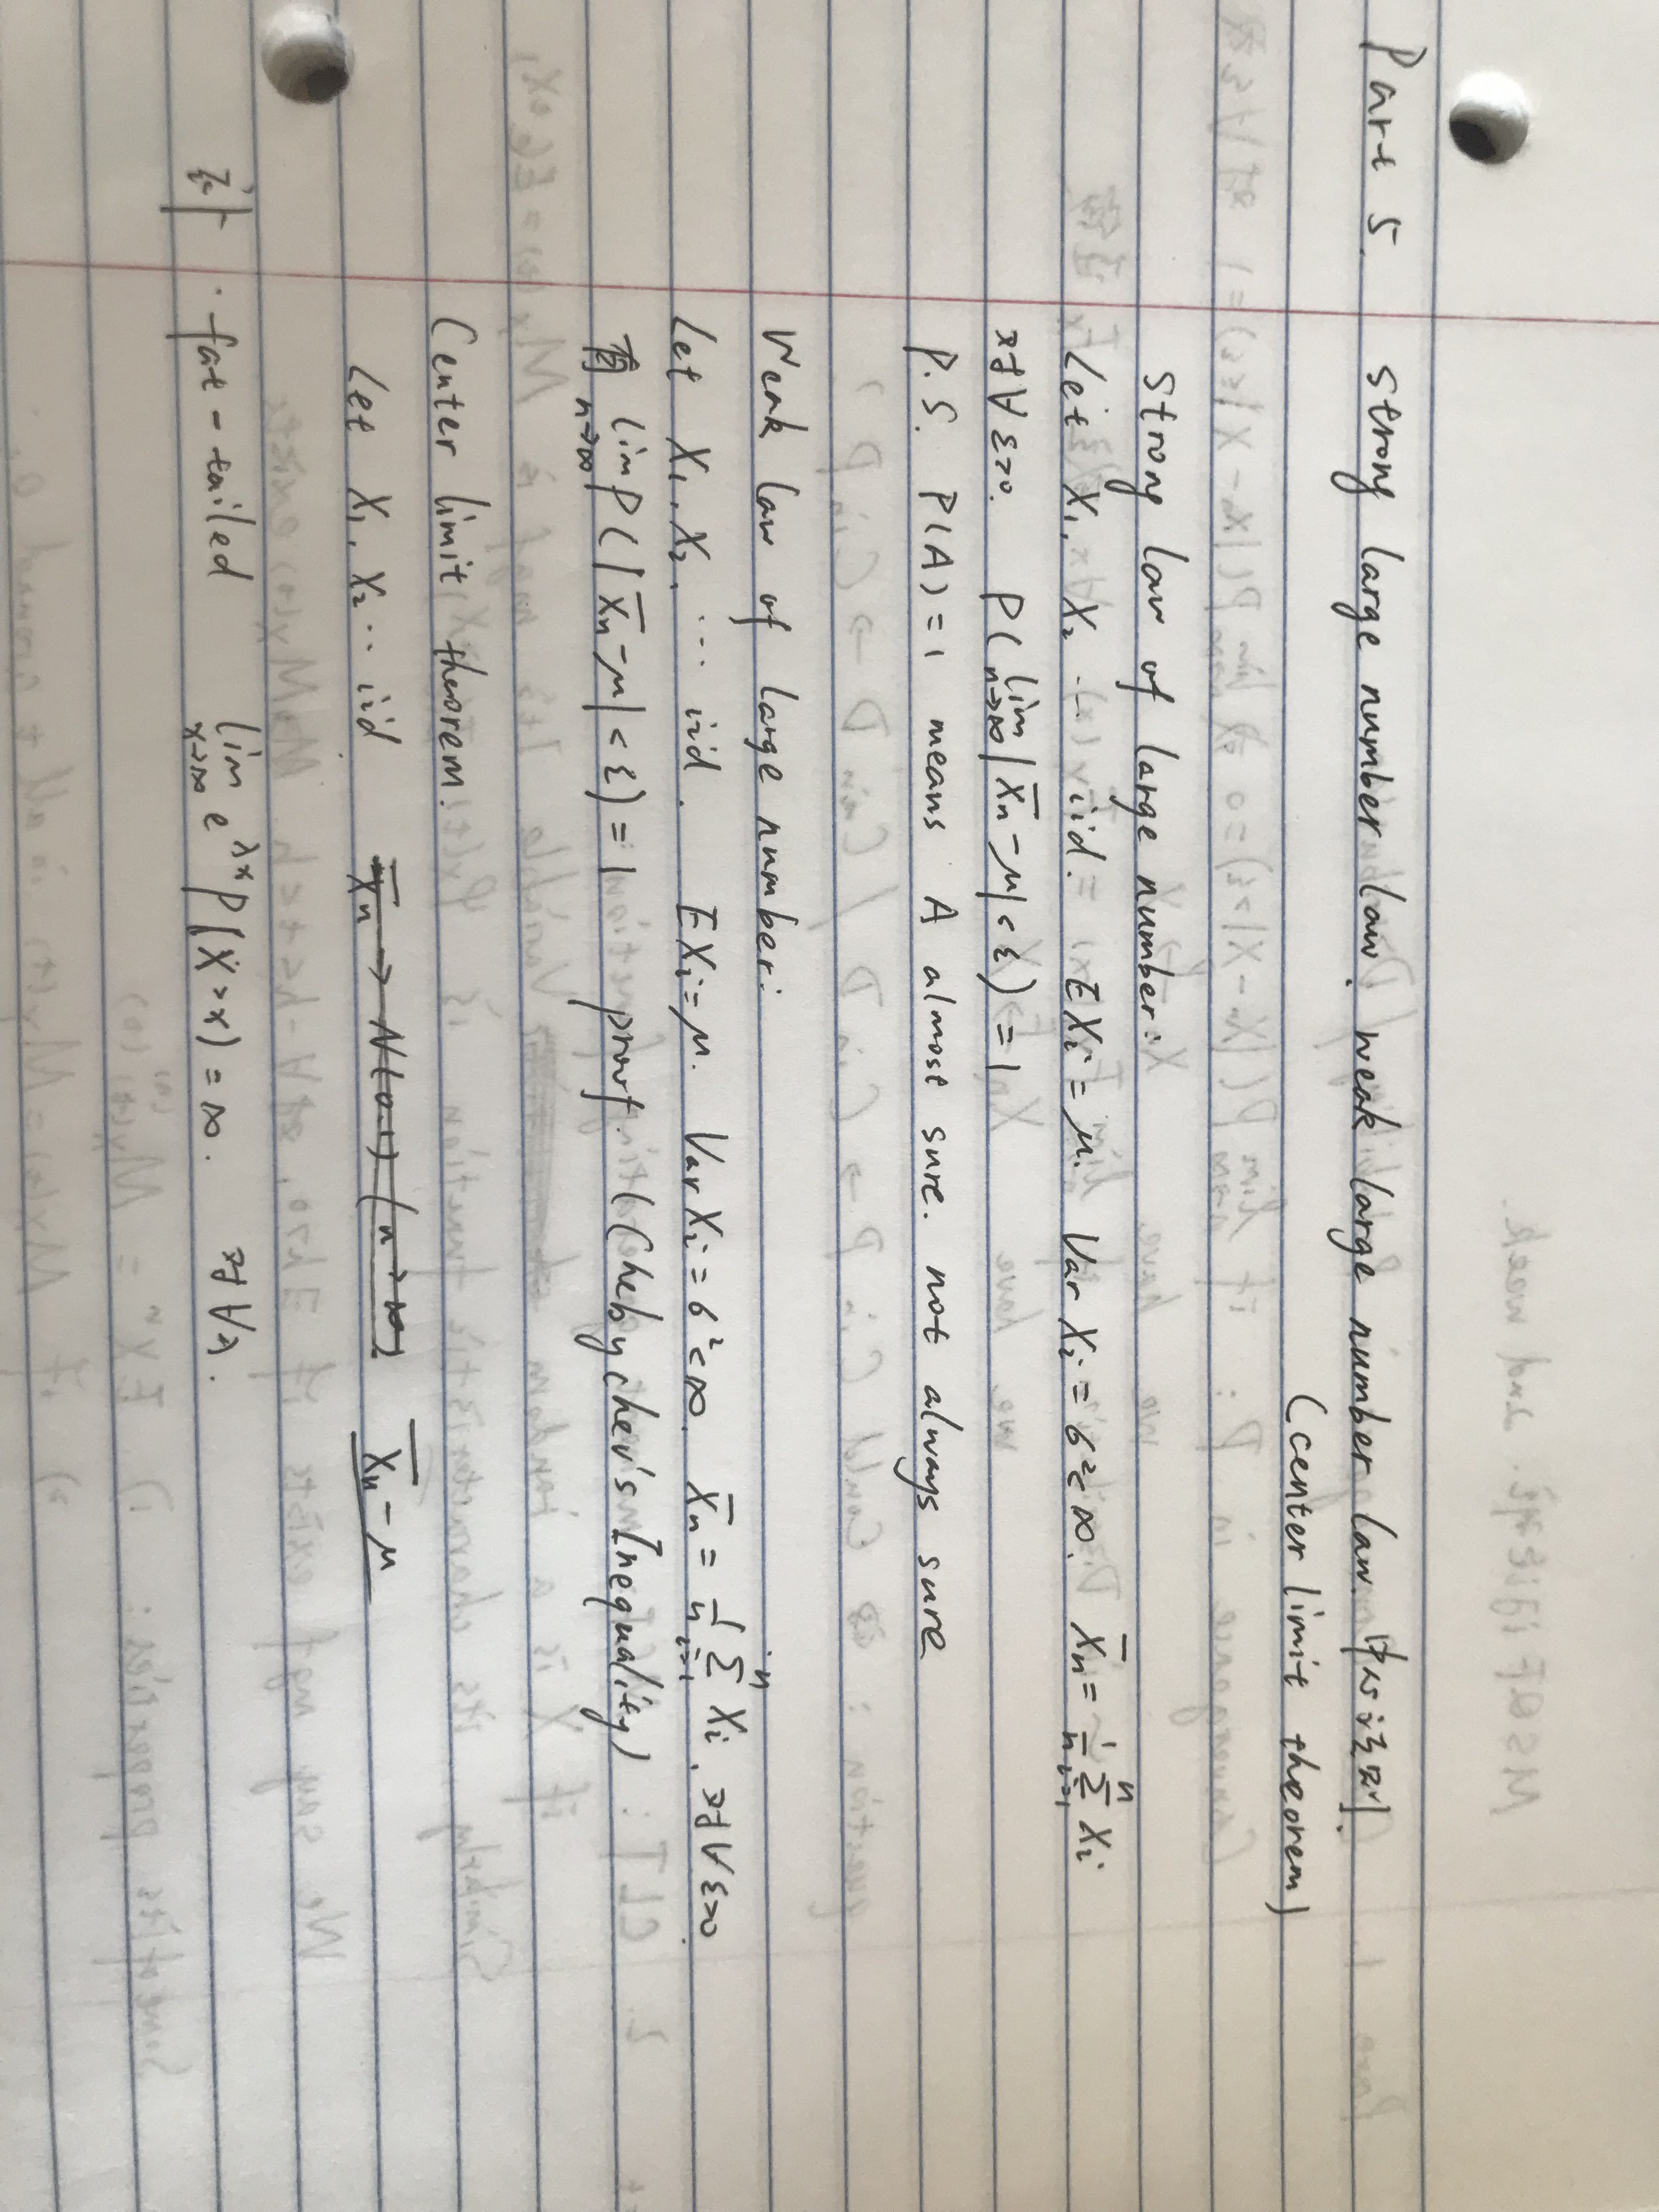 Part 5. strong large number law. weak large number law. 中心极限.
(center limit theorem)
Strong law of large number:
Let X₁, X₂ ... iid. EXᵢ = μ. Var Xᵢ = σ² < ∞. X̄ₙ = 1/n Σᵢ₌₁ⁿ Xᵢ
对∀ ε>0. P(lim n→∞ |X̄ₙ - μ| < ε) = 1
P.S. P(A) = 1 means A almost sure. not always sure
Weak law of large number:
Let X₁, X₂, ... iid. EXᵢ = μ. Var Xᵢ = σ² < ∞. X̄ₙ = 1/n Σᵢ₌₁ⁿ Xᵢ, 对∀ ε>0.
有 lim n→∞ P(|X̄ₙ - μ| < ε) = 1 proof. (Chebychev's Inequality)
Center limit theorem:
Let X₁, X₂ ... iid X̄ₙ → N(0.1) (n→∞) X̄ₙ - μ
fat-tailed lim x→∞ e^λx P(X > x) = ∞. 对∀λ.